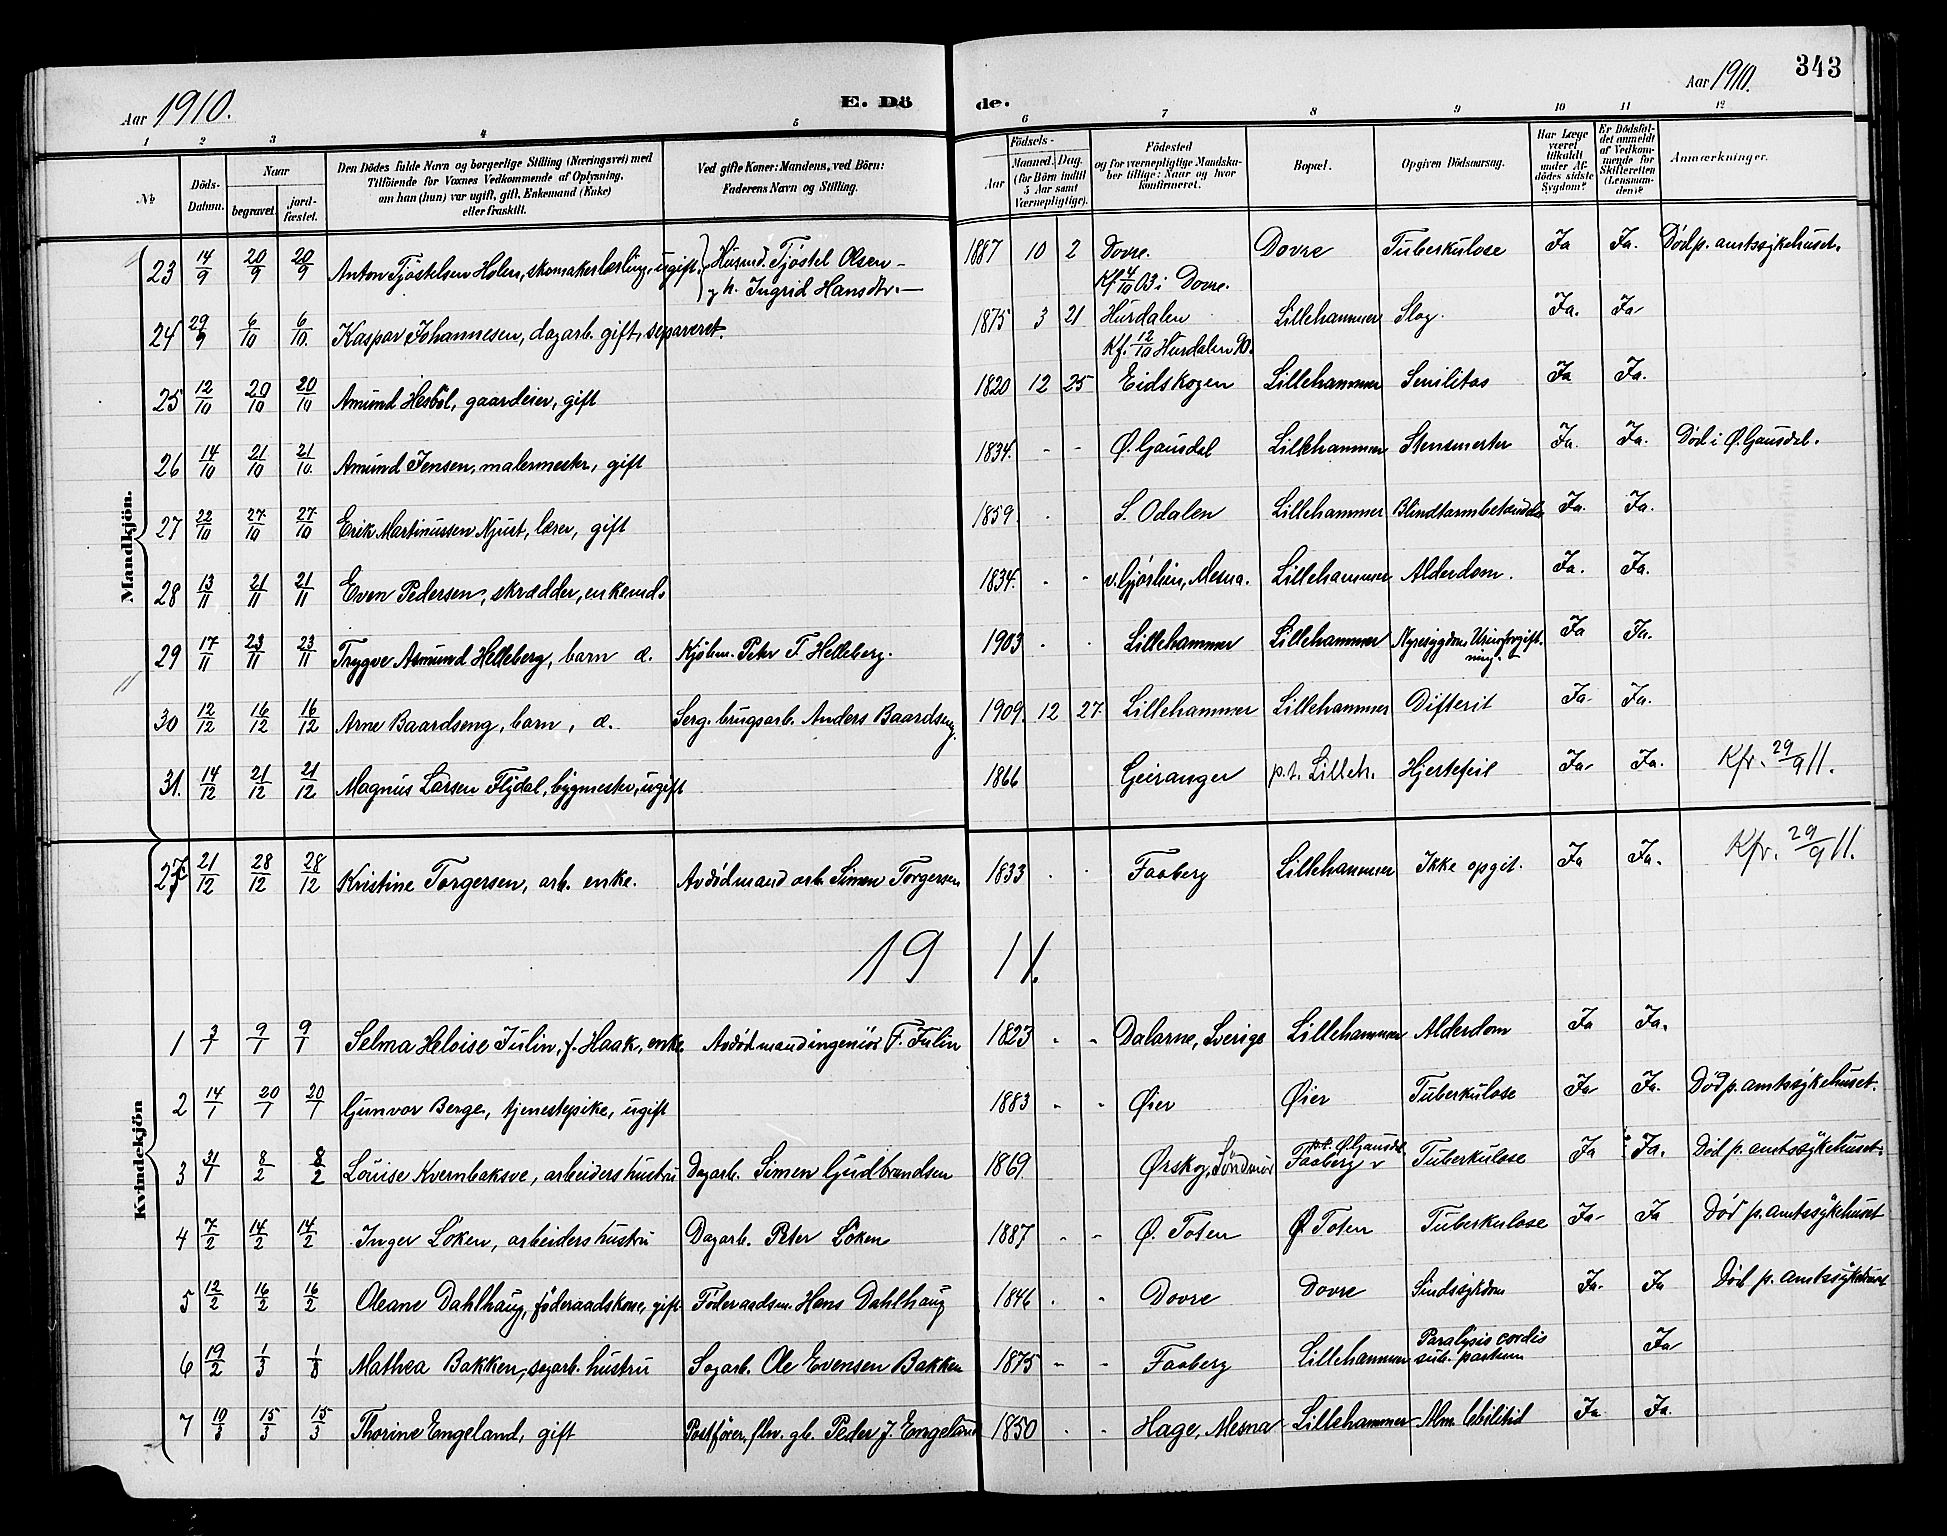 Aar 1910.
E. Döde.
Aar 1910.
343
1 2 3 4 5 6 7 8 9 10 11 12
No
Döds-Datum.
Naar begravet. jordfæstet.
Den Dödes fulde Navn og borgerlige Stilling (Næringsvei) med Tilföiende for Voxnes Vedkommende af Oplysning, om han (hun) var ugift, gift, Enkemand (Enke) eller fraskilt.
Ved gifte Koner: Mandens, ved Börn: Faderens Navn og Stilling.
Födsels- Aar Maaned. Dag. (for Börn indtil 5 Aar samt Værnepligtige).
Födested og for værnepligtige Mandskaber tillige: Naar og hvor konfirmeret.
Bopæl.
Opgiven Dödsaarsag.
Har Læge været tilkaldt under Afdödes sidste Sygdom?
Er Dödsfaldet anmeldt af Vedkommende for Skifteretten (Lensmanden)?
Anmærkninger.
Mandkjön.
23 14/9 20/9 20/9 Anton Tjöstelsen Holen, skomakerlærling, ugift. Husmd. Tjöstel Olsen 1887 10 2 Dovre. Dovre Tuberkulose Ja Ja. Död p. amtssykehuset.
og h. Ingrid Hansdtr. Kf 4/10 03 i Dovre.
24 29/9 6/10 6/10. Kaspar Johannesen, dagarb. gift, separeret. 1875 3 21 Hurdalen Lillehammer Slag. Ja. Ja
Kf. 12/10 Hurdalen 90.
25 12/10 20/10 20/10 Amund Hesböl, gaardeier, gift 1820 12 25 Eidskogen Lillehammer Senilitas Ja Ja.
26 14/10 21/10 21/10. Amund Jensen, malermester, gift 1834. - - Ø. Gausdal Lillehammer Stensmerter Ja. Ja. Död i Ø. Gausdal.
27 22/10 27/10 27/10 Erik Martinussen Njust, lærer, gift 1859. S. Odalen Lillehammer Blindtarmbetændelse Ja. Ja.
28 13/11 21/11 21/11 Even Pedersen, skrædder, enkemd. 1834. - - Mesna. Lillehammer Alderdom. Ja. Ja.
29 17/11 23/11 23/11 Trygve Asmund Helleberg, barn æ. Kjöbm. Peter F. Helleberg. 1903 Lillehammer Lillehammer Nyresygdom Urinforgiftning. Ja Ja.
30 12/12 16/12 16/12 Arne Baardseng, barn, æ. Serg. brugsarb. Anders Baardseng. 1909. 12 27 Lillehammer Lillehammer Difterit Ja Ja.
31. 14/12 21/12 21/12 Magnus Larsen Flydal, bygmester, ugift 1866 Geiranger p.t. Lilleh. Hjertefeil Ja Ja. Kfr. 29/9 11.
27 21/12 28/12 28/12 Kristine Torgersen, arb. enke. Avdöd mand arb. Simen Torgersen 1833 Faaberg Lillehammer Ikke opgit. Ja Ja. Kfr. 29/9 11.
1911.
Kvindekjön
1 3/1 9/1 9/1 Selma Heloise Julin, f. Haak, enke Avdöd mand ingeniör F. Julin 1823 - - Dalarne, Sverige Lillehammer Alderdom Ja Ja.
2 14/1 20/1 20/1 Gunvor Berge, tjenestepike, ugift 1883 - - Øier Øier Tuberkulose Ja Ja. Död p. amtssykehuset.
3 31/1 8/2 8/2 Louise Kvernbaksve, arbeiders hustru Dagarb. Simen Gudbrandsen 1869. Ørskog, Söndmör p.t. Ø. Gausdal Faaberg Tuberkulose Ja Ja. Död p. amtssykehuset.
4 7/2 14/2 14/2 Inger Löken, arbeiders hustru Dagarb. Peter Löken 1887 - - Ø. Toten Ø. Toten Tuberkulose Ja Ja Död p. amtssykehuset
5 12/2 16/2 16/2 Oleane Dahlhaug, föderaadskone, gift Föderaadsm. Hans Dahlhaug 1846 - - Dovre Dovre Sindssykdom Ja. Ja Död p. amtssykehuset
6 19/2 1/3 1/3 Mathea Bakken, sagarb. hustru Sagarb. Ole Evensen Bakken 1875 - - Faaberg Lillehammer Paralysis cordis sub. partum Ja
7 10/3 15/3 15/3 Thorine Engeland, gift Postförer, gb. Peder J. Engeland 1850 - - Hage, Mesna Lillehammer Alm. debilitet Ja Ja.